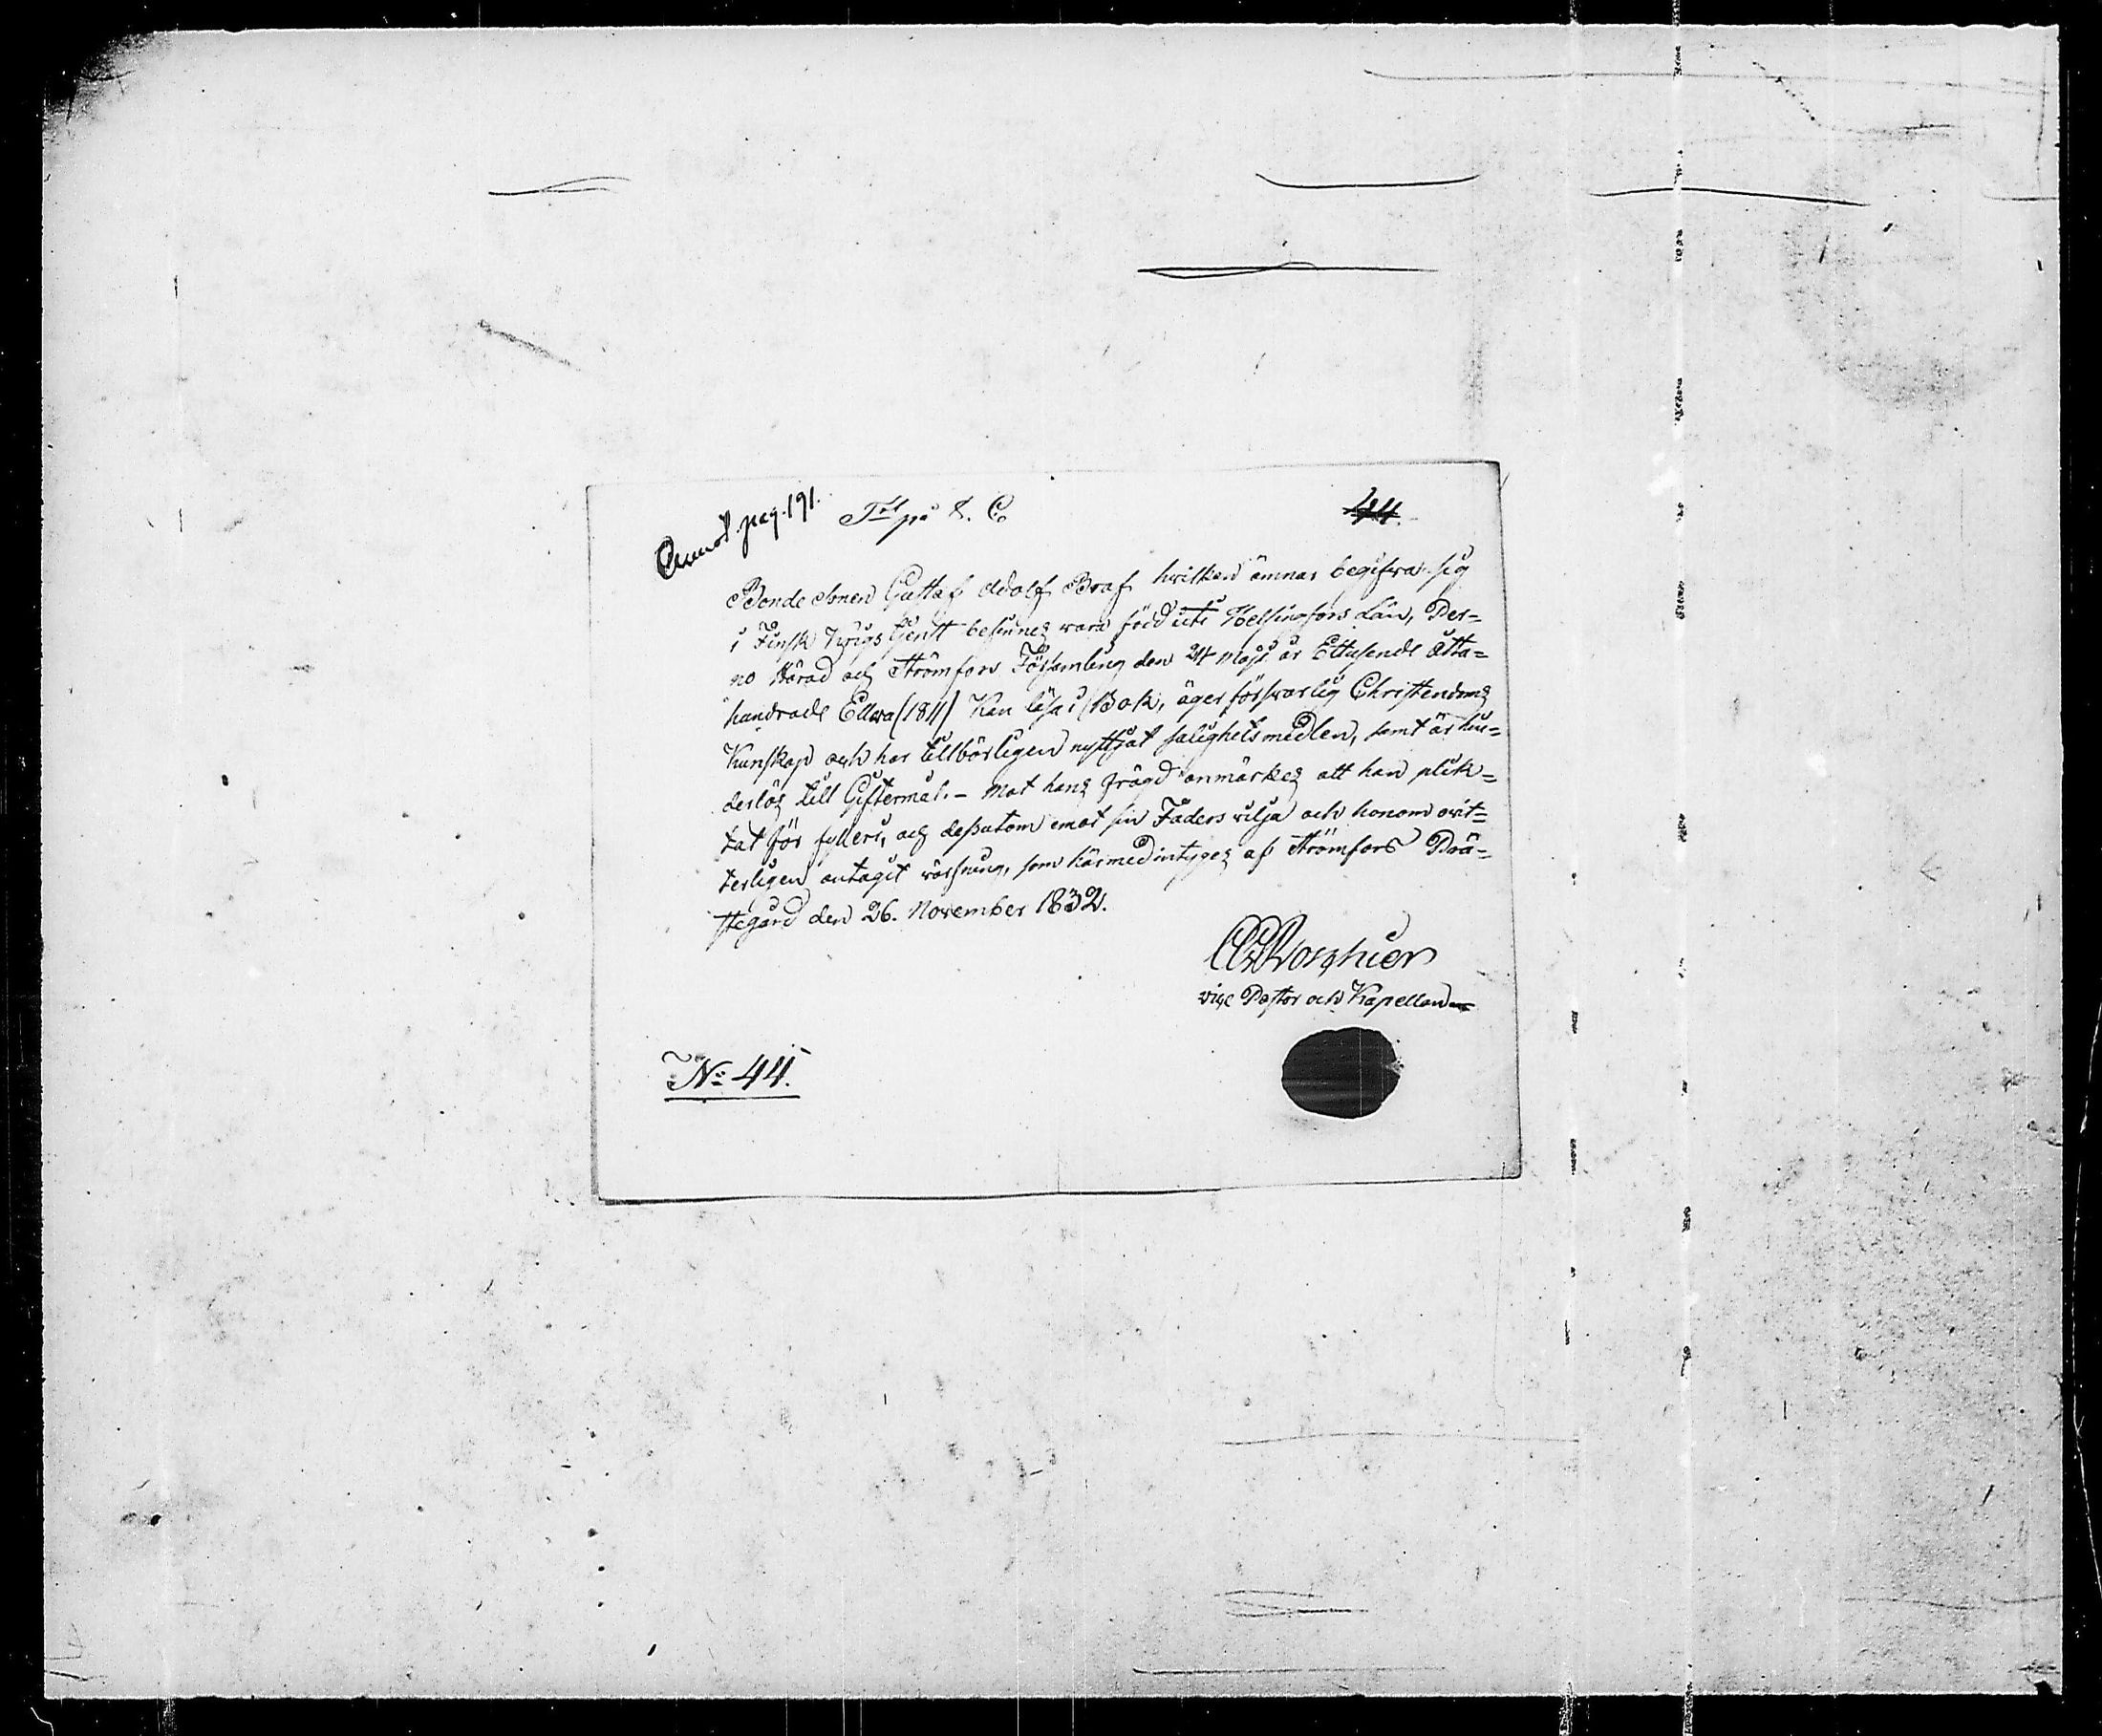 Annot. pag. 191. Tit på L. C. 44.
Bonde Sonen Gustaf Adolf Braf hvilken ämnar begifva sig
i Finsk krigs tjenst befinnes vara född uti Helsingfors Län, Per-
no Härad och Strömfors Församling den 24 Maji år Ettusende åtta-
hundrade Ellva (1811) Kan läsa i Bok, äger försvarlig Christendoms
Kunskap och har tillbörligen nyttjat salighetsmedlen, samt är hin-
derlös till Giftermål. – Mot hans frägd anmärkes att han plik-
tat för fylleri, och dessutom emot sin Faders vilja och honom ovit-
terligen antagit värfning, som härmed intyges af Strömfors Prä-
stegård den 26. November 1832.
vice Pastor och Kapellan
No 44.